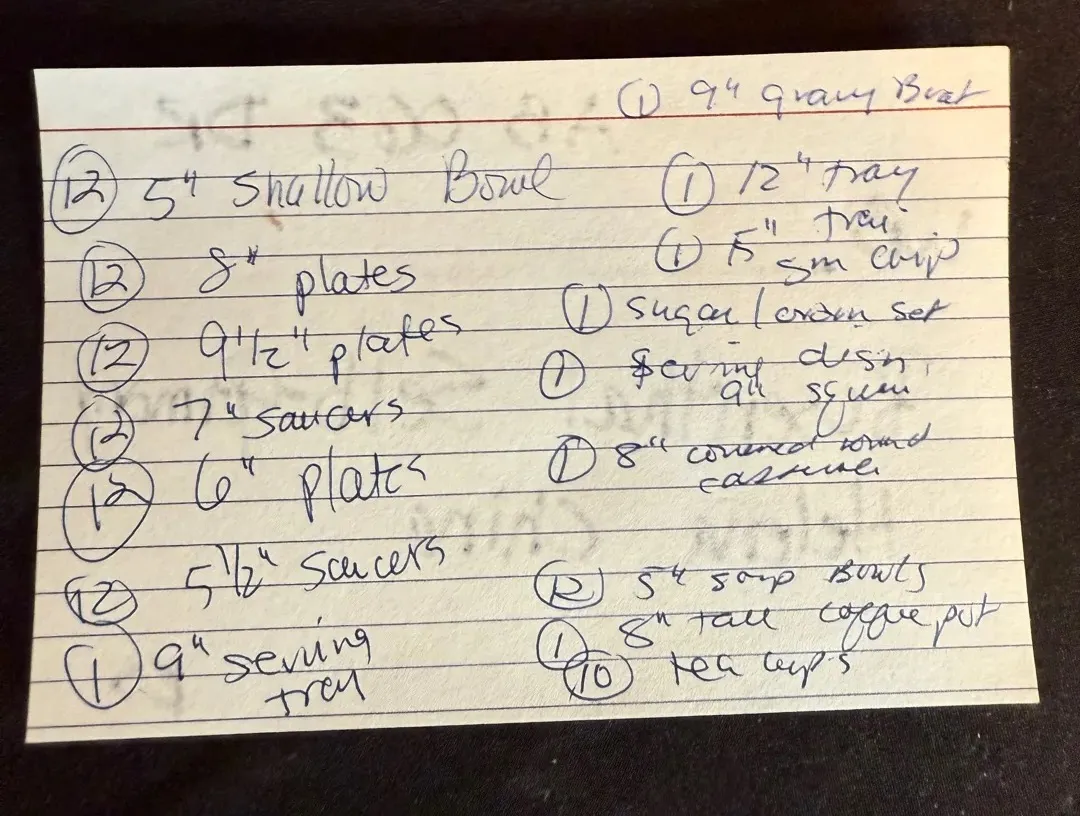 ① 9" gravy Boat
⑫ 5" Shallow Bowl
⑫ 8" plates
⑫ 9 1/2" plates
⑫ 7" saucers
⑫ 6" plates
⑫ 5 1/2" saucers
① 9" serving
tray
① 12" tray
① 15" tray
sm chip
① sugar / cream set
① Serving dish
9" square
① 8" covered round
casserole
⑫ 5" soup Bowls
① 8" tall coffee pot
⑩ tea cups